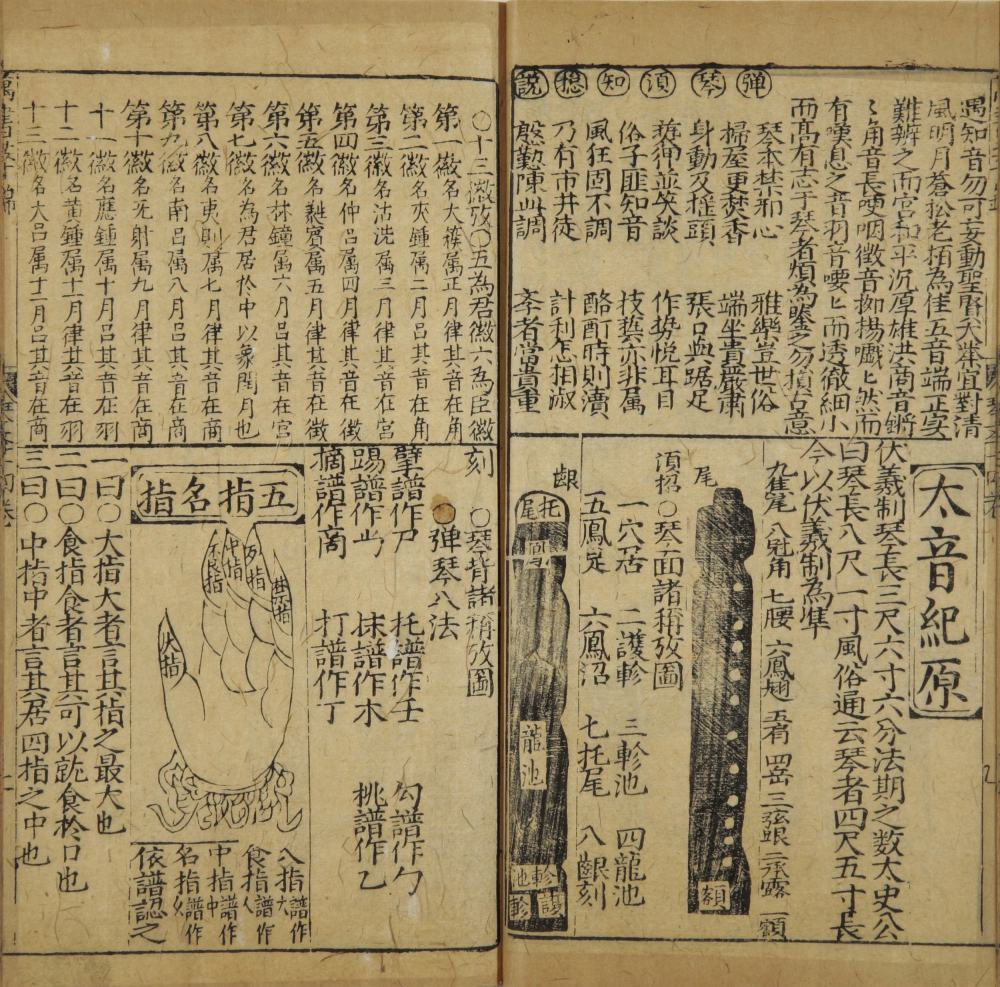 遇知音勿可妄動聖賢矢舉宜對清
風明月蒼松老栢為佳五音端正
難辨之而宮和平沉厚雄洪商音鏘
〻角音長哽咽徵音抑揚嘁〻然而
有嘆息之音羽音嘤〻而透徹細小
而高有志于琴者須為鑒之勿損古意
弹琴須知總説
琴本禁邪心 雅樂豈世俗
掃屋更焚香 端坐貴嚴肅
身動及搖頭 張口與踞足
並笑談 作势悦耳目
俗子匪知音 技藝亦非属
風狂固不調 酩酊時則瀆
乃有市井徒 計利怎相淑
慇懃陳此調 孝者當貴重
太音紀原
伏羲制琴長三尺六寸六分法期之数太史公
曰琴長八尺一寸風俗通云琴者四尺五寸長
今以伏羲制為準
九雀尾 八尅角 七腰 六鳳翅 五肩 四岳 三弦眼 二承露 一額
尾
額
項招〇琴面諸稱攷圖
一穴居 二護軫 三軫池 四龍池
五鳳足 六鳳沼 七托尾 八齦刻
齦
托尾
龍池
軫池
護軫
〇十三徽攷〇五為君徽六為臣徽
第一徽名大簇属正月律其音在角
第二徽名夾鍾属二月吕其音在角
第三徽名沽洗属三月律其音在角
第四徽名仲吕属四月吕其音在徵
第五徽名蕤賓属五月律其音在徵
第六徽名林鐘属六月吕其音在宮
第七徽名為君居於中以象閏月也
第八徽名夷則属七月律其音在商
第九徽名南吕属八月吕其音在商
第十徽名无射属九月律其音在商
十一徽名應鍾属十月吕其音在羽
十二徽名黄鍾属十一月律其音在羽
十三徽名大吕属十二月吕其音在商
刻 〇琴背諸稱攷圖
〇弹琴八法
擘譜作尸 托譜作乇 勾譜作勹
踢譜作 抹譜作木 挑譜作乙
摘譜作啇 打譜作丁
五指名指
大指
食指
中指
名指
禁指
大指譜作大
食指譜作人
中指譜作中
名指譜作夕
依譜認之
一曰〇大指大者言其指之最大也
二曰〇食指食者言其可以就食於口也
三曰〇中指中者言其居四指之中也